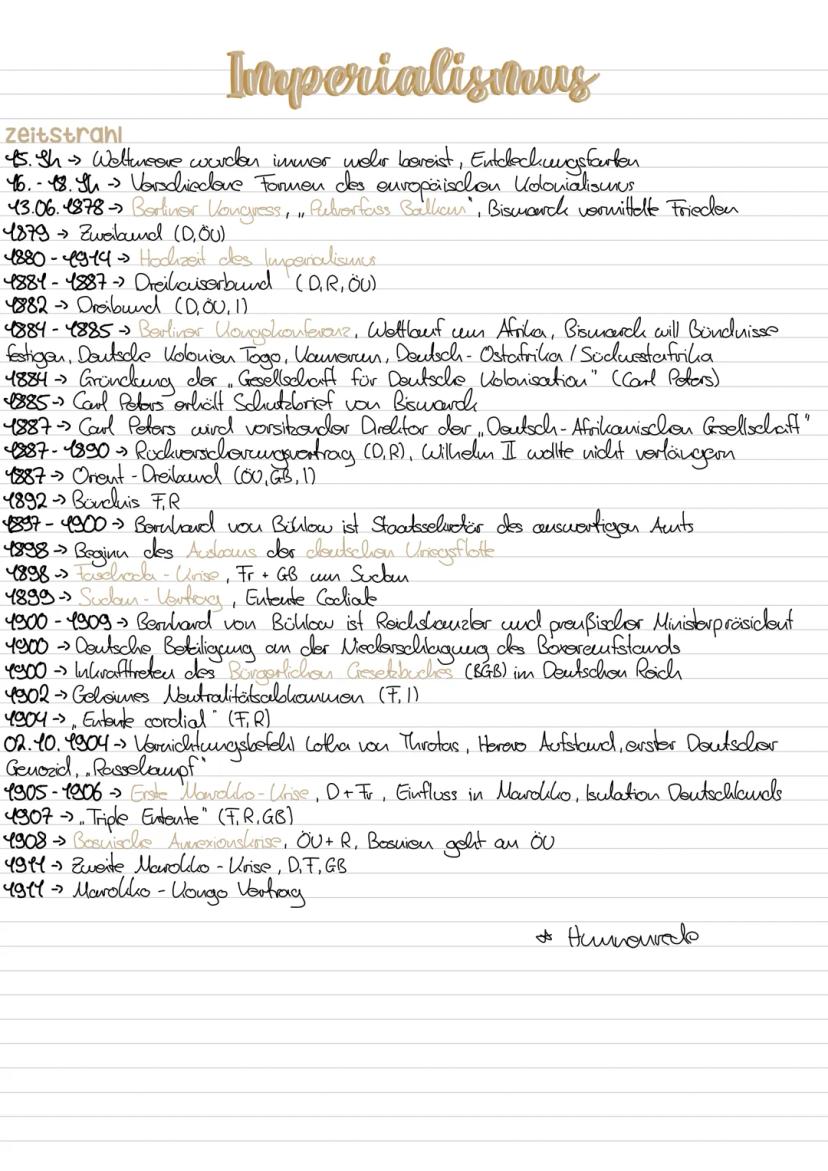 Imperialismus
zeitstrahl
15. Jh → Weltmeere wurden immer mehr bereist, Entdeckungsfarten
16. - 18. Jh → Verschiedene Formen des europäischen Kolonialismus
13.06.1878 → Berliner Kongress, „Pulverfass Balkan", Bismarck vermittelte Frieden
1879 → Zweibund (D,ÖU)
1880 - 1914 → Hochzeit des Imperialismus
1881 - 1887 → Dreikaiserbund (D,R,ÖU)
1882 → Dreibund (D,ÖU,I)
1884 - 1885 → Berliner Kongokonferenz, Wettlauf um Afrika, Bismarck will Bündnisse
festigen, Deutsche Kolonien Togo, Kamerun, Deutsch-Ostafrika / Südwestafrika
1884 → Gründung der „Gesellschaft für Deutsche Kolonisation" (Carl Peters)
1885 → Carl Peters erhält Schutzbrief von Bismarck
1887 → Carl Peters wird vorsitzender Direktor der „Deutsch-Afrikanischen Gesellschaft"
1887 - 1890 → Rückversicherungsvertrag (D,R), Wilhelm II wollte nicht verlängern
1887 → Orient-Dreibund (ÖU,GB,I)
1892 → Bündnis F,R
1897 - 1900 → Bernhard von Bühlow ist Staatssekretär des auswertigen Amts
1898 → Beginn des Ausbaus der deutschen Kriegsflotte
1898 → Faschoda-Krise, Fr + GB um Sudan
1899 → Sudan-Vertrag, Entente Codiale
1900 - 1909 → Bernhard von Bühlow ist Reichskanzler und preußischer Ministerpräsident
1900 → Deutsche Beteiligung an der Niederschlagung des Boxeraufstands
1900 → Inkrafttreten des Bürgerlichen Gesetzbuches (BGB) im Deutschen Reich
1902 → Geheimes Neutralitätsabkommen (F,I)
1904 → „Entente cordial" (F,R)
02.10.1904 → Vernichtungsbefehl Lotha von Throtas, Herero Aufstand, erster Deutscher
Genozid, „Rassekampf"
1905 - 1906 → Erste Marokko-Krise, D + Fr, Einfluss in Marokko, Isulation Deutschlands
1907 → „Triple Entente" (F,R,GB)
1908 → Bosnische Annexionskrise, ÖU + R, Bosnien geht an ÖU
1911 → Zweite Marokko-Krise, D,F,GB
1911 → Marokko-Kongo Vertrag
* Hunnenrede